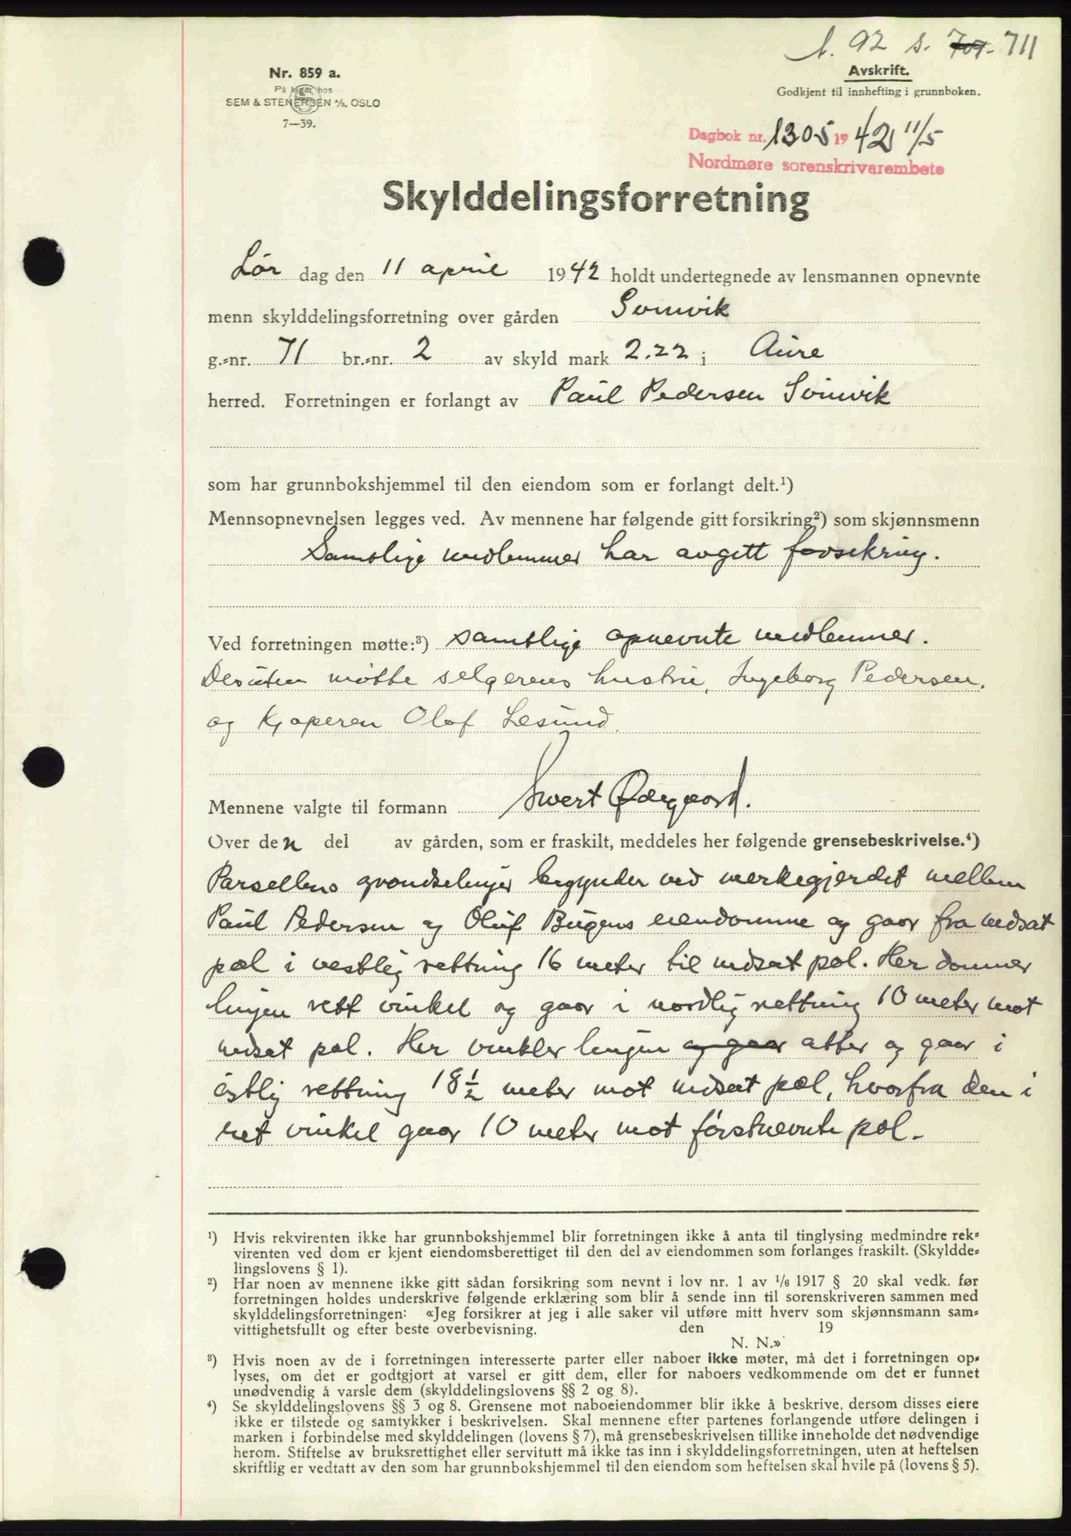 A. 92 s. 707. 711
Nr. 859 a.
På lager hos
SEM & STENERSEN A/S, OSLO
7—39.
Avskrift.
Godkjent til innhefting i grunnboken.
Dagbok nr. 1305 1942 11/5
Nordmøre sorenskrivarembete
Skylddelingsforretning
Lør dag den 11 april 1942 holdt undertegnede av lensmannen opnevnte
menn skylddelingsforretning over gården Somvik
g.-nr. 71 br.-nr. 2 av skyld mark 2.22 i Aure
herred. Forretningen er forlangt av Paul Pedersen Somvik
som har grunnbokshjemmel til den eiendom som er forlangt delt.¹)
Mennsopnevnelsen legges ved. Av mennene har følgende gitt forsikring²) som skjønnsmenn
Samtlige medlemmer har avgitt forsikring.
Ved forretningen møtte:³) samtlige opnevnte medlemmer.
Desuten møtte selgerens hustru, Ingeborg Pedersen,
og kjøperen Olaf Lesund.
Mennene valgte til formann Sivert Ødegaard.
Over den del av gården, som er fraskilt, meddeles her følgende grensebeskrivelse.⁴)
Parsellens grendselinjer begynder ved merkegjerdet mellem
Paul Pedersen og Oluf Bugens eiendomme og gaar fra nedsat
pæl i vestlig rettning 16 meter til nedsat pæl. Her danner
linjen rett vinkel og gaar i nordlig rettning 10 meter mot
nedsat pæl. Her vinkler linjen og gaar atter og gaar i
østlig rettning 18½ meter mot nedsat pæl, hvorfra den i
ret vinkel gaar 10 meter mot førstnevnte pæl.
¹) Hvis rekvirenten ikke har grunnbokshjemmel blir forretningen ikke å anta til tinglysing medmindre rek-
virenten ved dom er kjent eiendomsberettiget til den del av eiendommen som forlanges fraskilt. (Skyldde-
lingslovens § 1).
²) Har noen av mennene ikke gitt sådan forsikring som nevnt i lov nr. 1 av 1/6 1917 § 20 skal vedk. før
forretningen holdes underskrive følgende erklæring som blir å sende inn til sorenskriveren sammen med
skylddelingsforretningen: «Jeg forsikrer at jeg i alle saker vil utføre mitt hverv som skjønnsmann sam-
vittighetsfullt og efter beste overbevisning. den 19
N. N.»
³) Hvis noen av de i forretningen interesserte parter eller naboer ikke møter, må det i forretningen op-
lyses, om det er godtgjort at varsel er gitt dem, eller for naboers vedkommende om det er funnet
unødvendig å varsle dem (skylddelingslovens §§ 2 og 8).
⁴) Se skylddelingslovens §§ 3 og 8. Grensene mot naboeiendommer blir ikke å beskrive, dersom disses eiere
ikke er tilstede og samtykker i beskrivelsen. Skal mennene efter partenes forlangende utføre delingen i
marken i forbindelse med skylddelingen (lovens § 7), må grensebeskrivelsen tillike inneholde det nødvendige
herom. Stiftelse av bruksrettighet eller servitutt må ikke tas inn i skylddelingsforretningen, uten at heftelsen
skriftlig er vedtatt av den som har grunnbokshjemmel til den eiendom som heftelsen skal hvile på (lovens § 5).